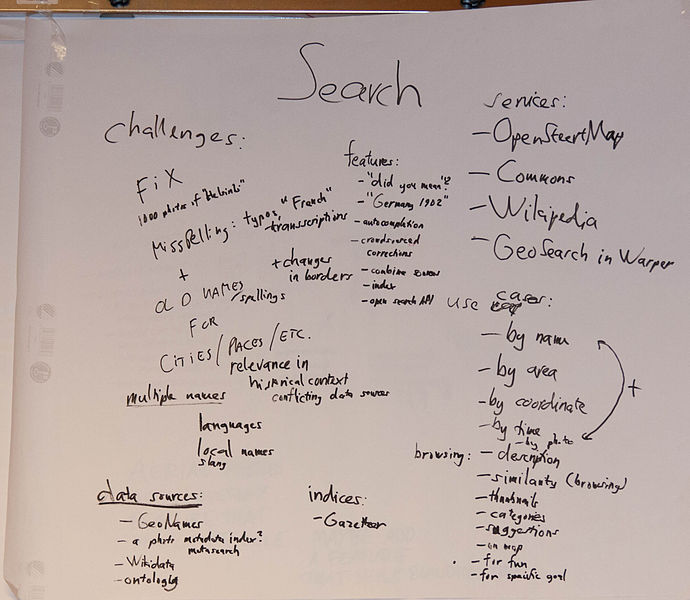 Search
challenges:
FiX
1000 photos of "Helsinki"
Misspelling: typos, "French"
transscriptions
+
OLD NAMES
/spellings
+changes
in borders
FOR
CiTiES/PLACES/ETC.
relevance in
historical context
conflicting data sources
multiple names
languages
local names
slang
features:
- "did you mean"?
- "Germany 1902"
- autocompletion
- crowdsourced
corrections
- combine sources
- index
- open search API
services:
- OpenSteertMap
- Commons
- Wikipedia
- GeoSearch in Warper
use cases:
- by name
- by area
- by coordinate
- by time
- by photo
+
browsing:
- description
- similarity (browsing)
- thumbnails
- categories
- suggestions
- on map
- for fun
- for specific goal
data sources:
- GeoNames
- a photo metadata index?
metasearch
- Wikidata
- ontology
indices:
- Gazetteer